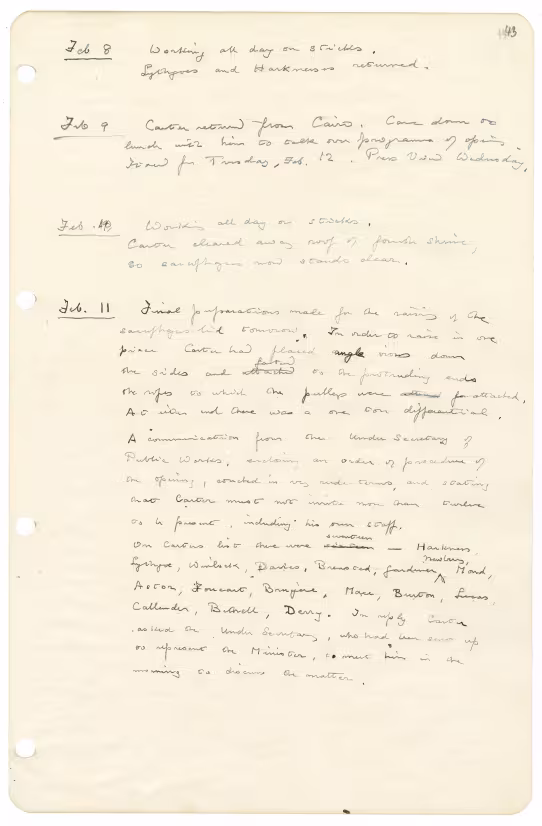 43
Feb 8 Working all day on sticks.
Lythgoes and Harknesses returned.
Feb 9 Carter returned from Cairo. Came down to
lunch with him to talk over programme of opening.
Fixed for Tuesday, Feb. 12. Press View Wednesday.
Feb. 10 Working all day on sticks.
Carter cleared away roof of fourth shrine,
so sarcophagus now stands clear.
Feb. 11 Final preparations made for the raising of the
sarcophagus lid tomorrow. In order to raise in one
piece Carter had placed angle irons down
the sides and attached fastened to the protruding ends
the ropes to which the pulleys were attached.
At either end there was a one ton differential.
A communication from the Under Secretary of
Public Works, enclosing an order of procedure of
the opening, couched in very rude terms, and stating
that Carter must not invite more than twelve
to be present, including his own staff.
On Carter's list there were sixteen seventeen — Harkness,
Lythgoe, Winlock, Davies, Breasted, Gardiner, Newberry, Mond,
Astor, Foucart, Bruyère, Mace, Burton, Lucas,
Callender, Bethell, Derry. In reply Carter
asked the Under Secretary, who had been sent up
to represent the Minister, to meet him in the
morning to discuss the matter.